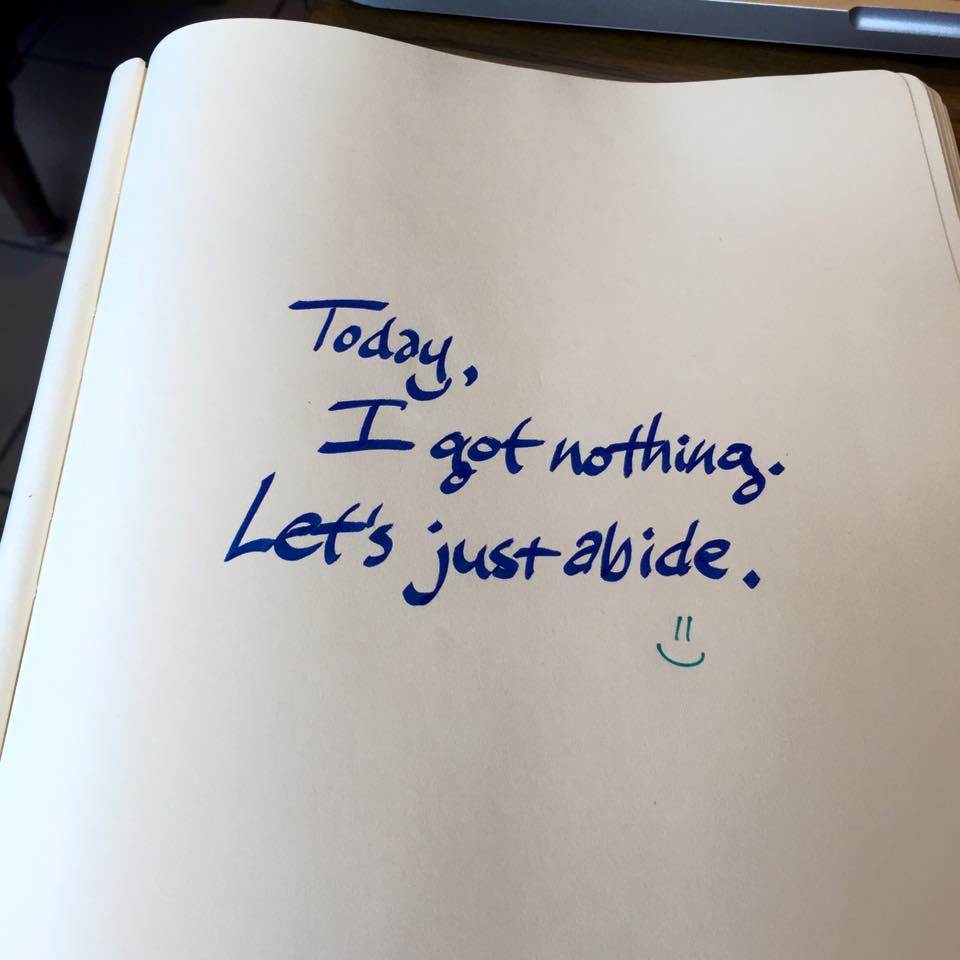 Today,
I got nothing.
Let's just abide.